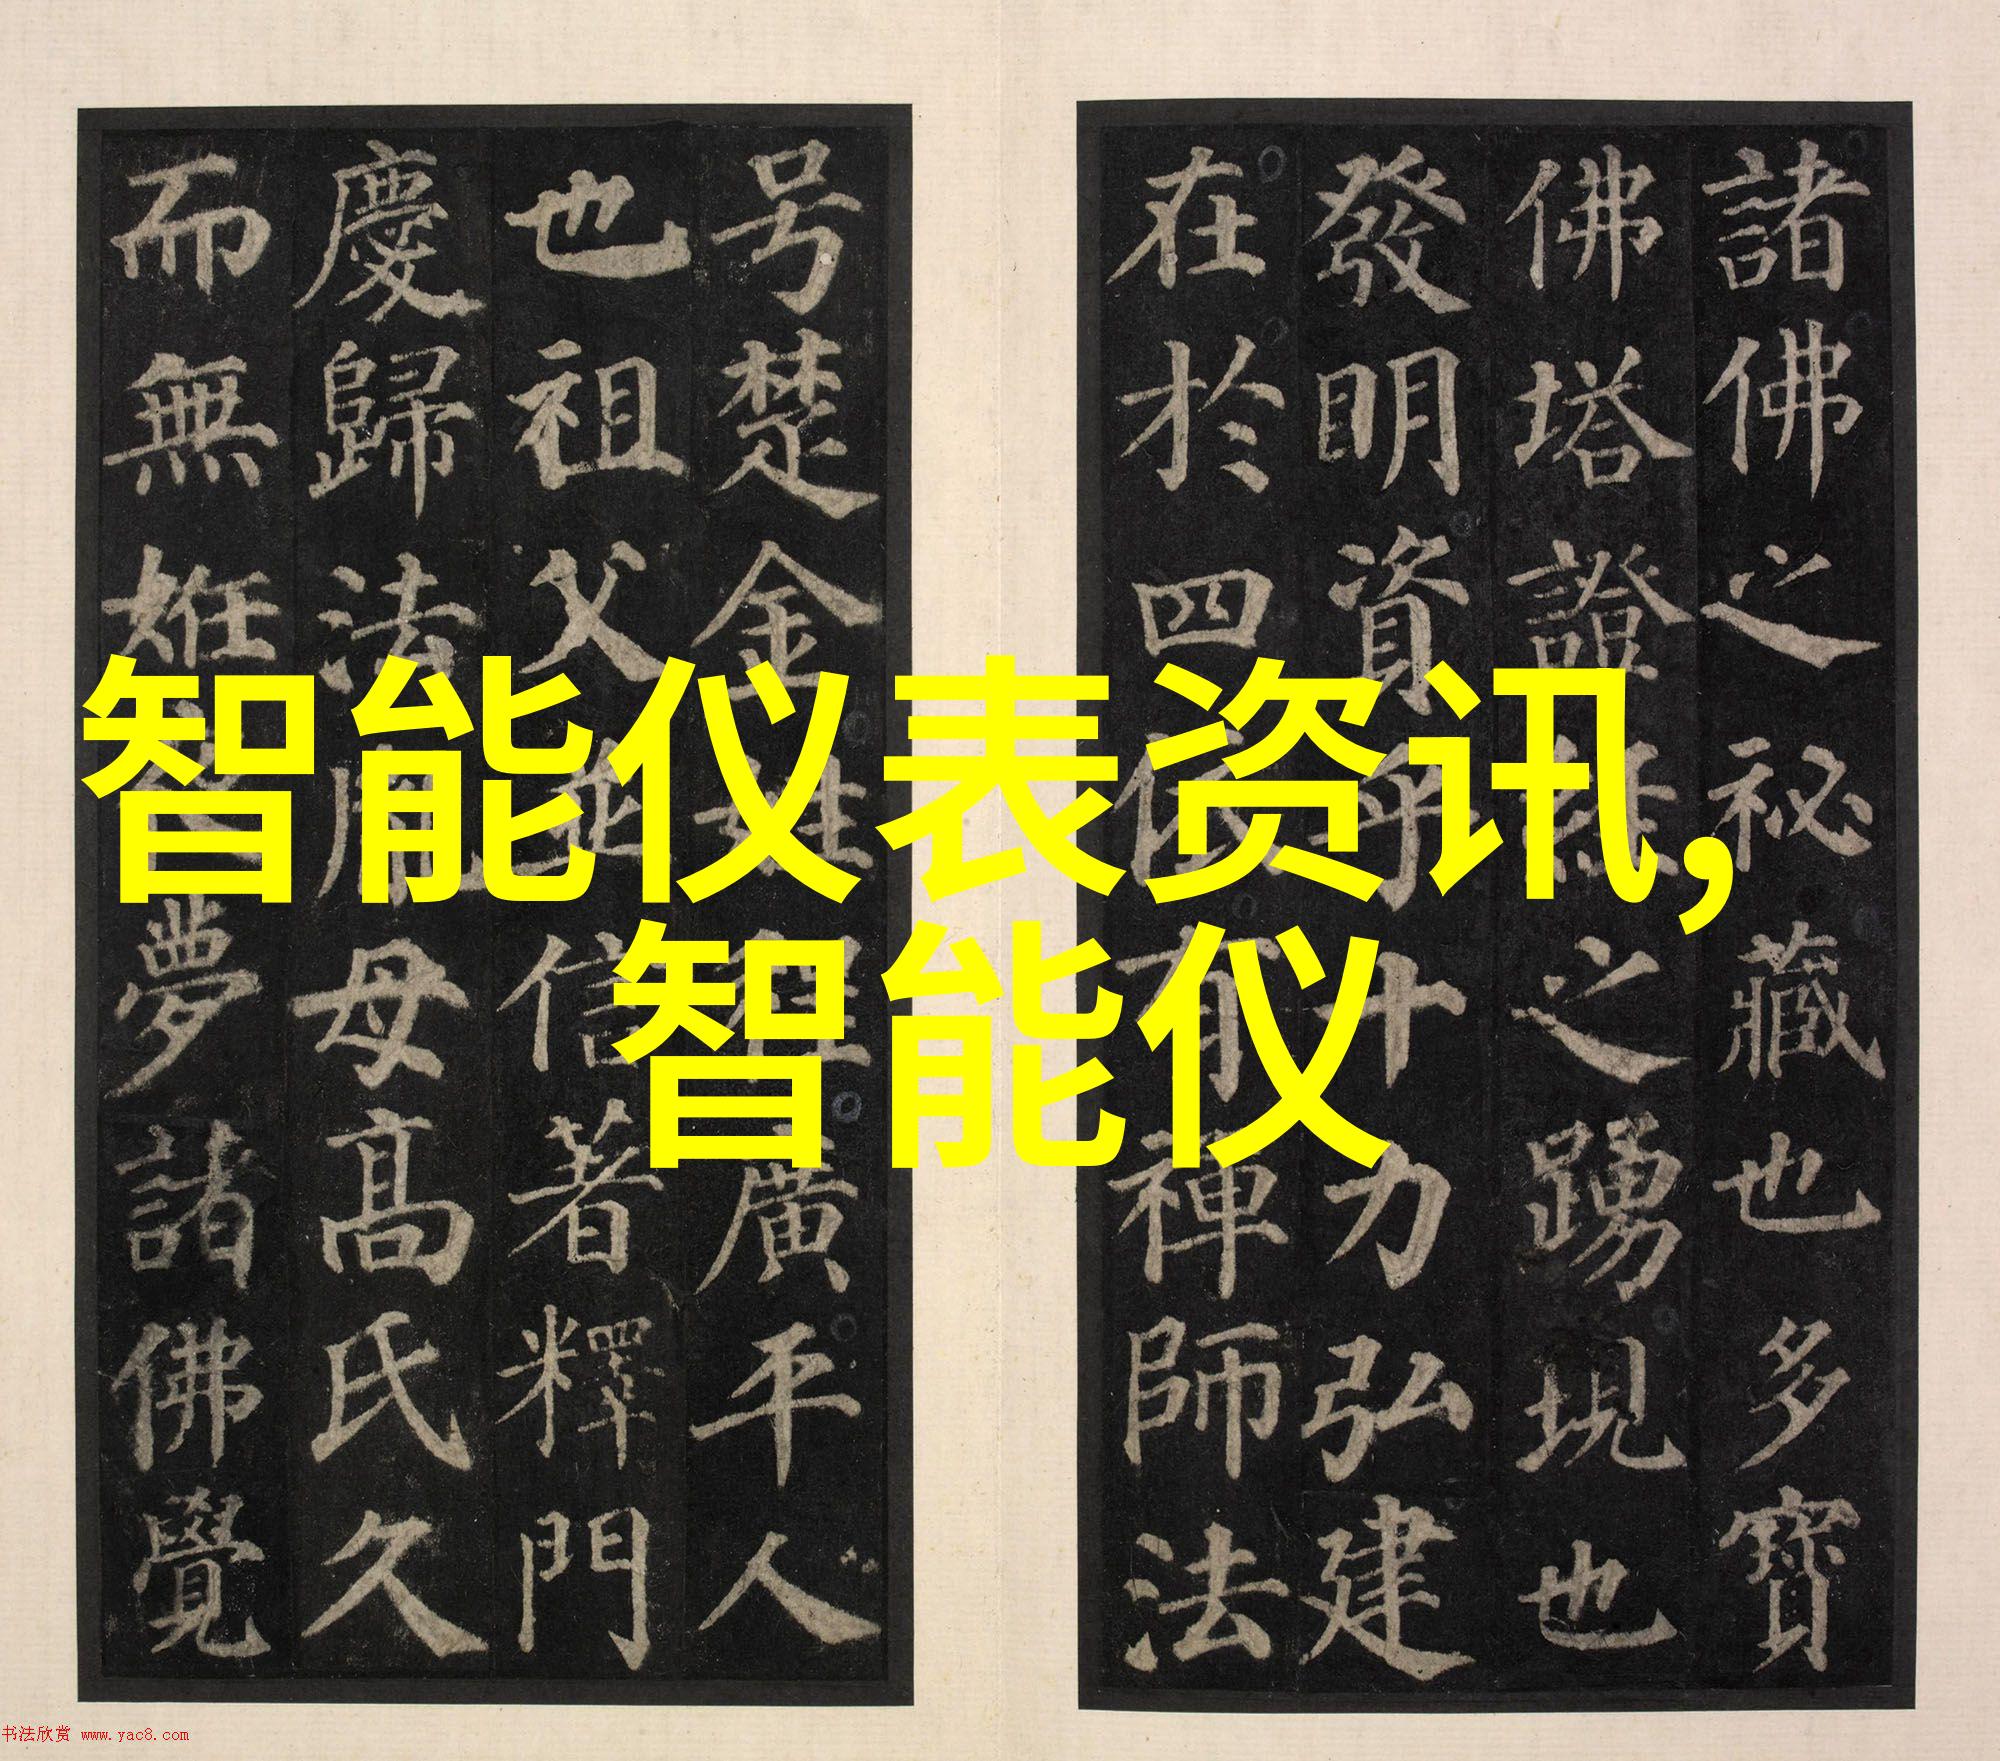 諸佛之祕藏也多寶
佛塔證經之踴現也
發明資乎十力弘建
在於四依有禪師法
号楚金姓程廣平人
也祖父並信著釋門
慶歸法胤母髙氏久
而無姙夢諸佛覺
智能仪表资讯,
智能仪
书法欣赏 www.yac8.com